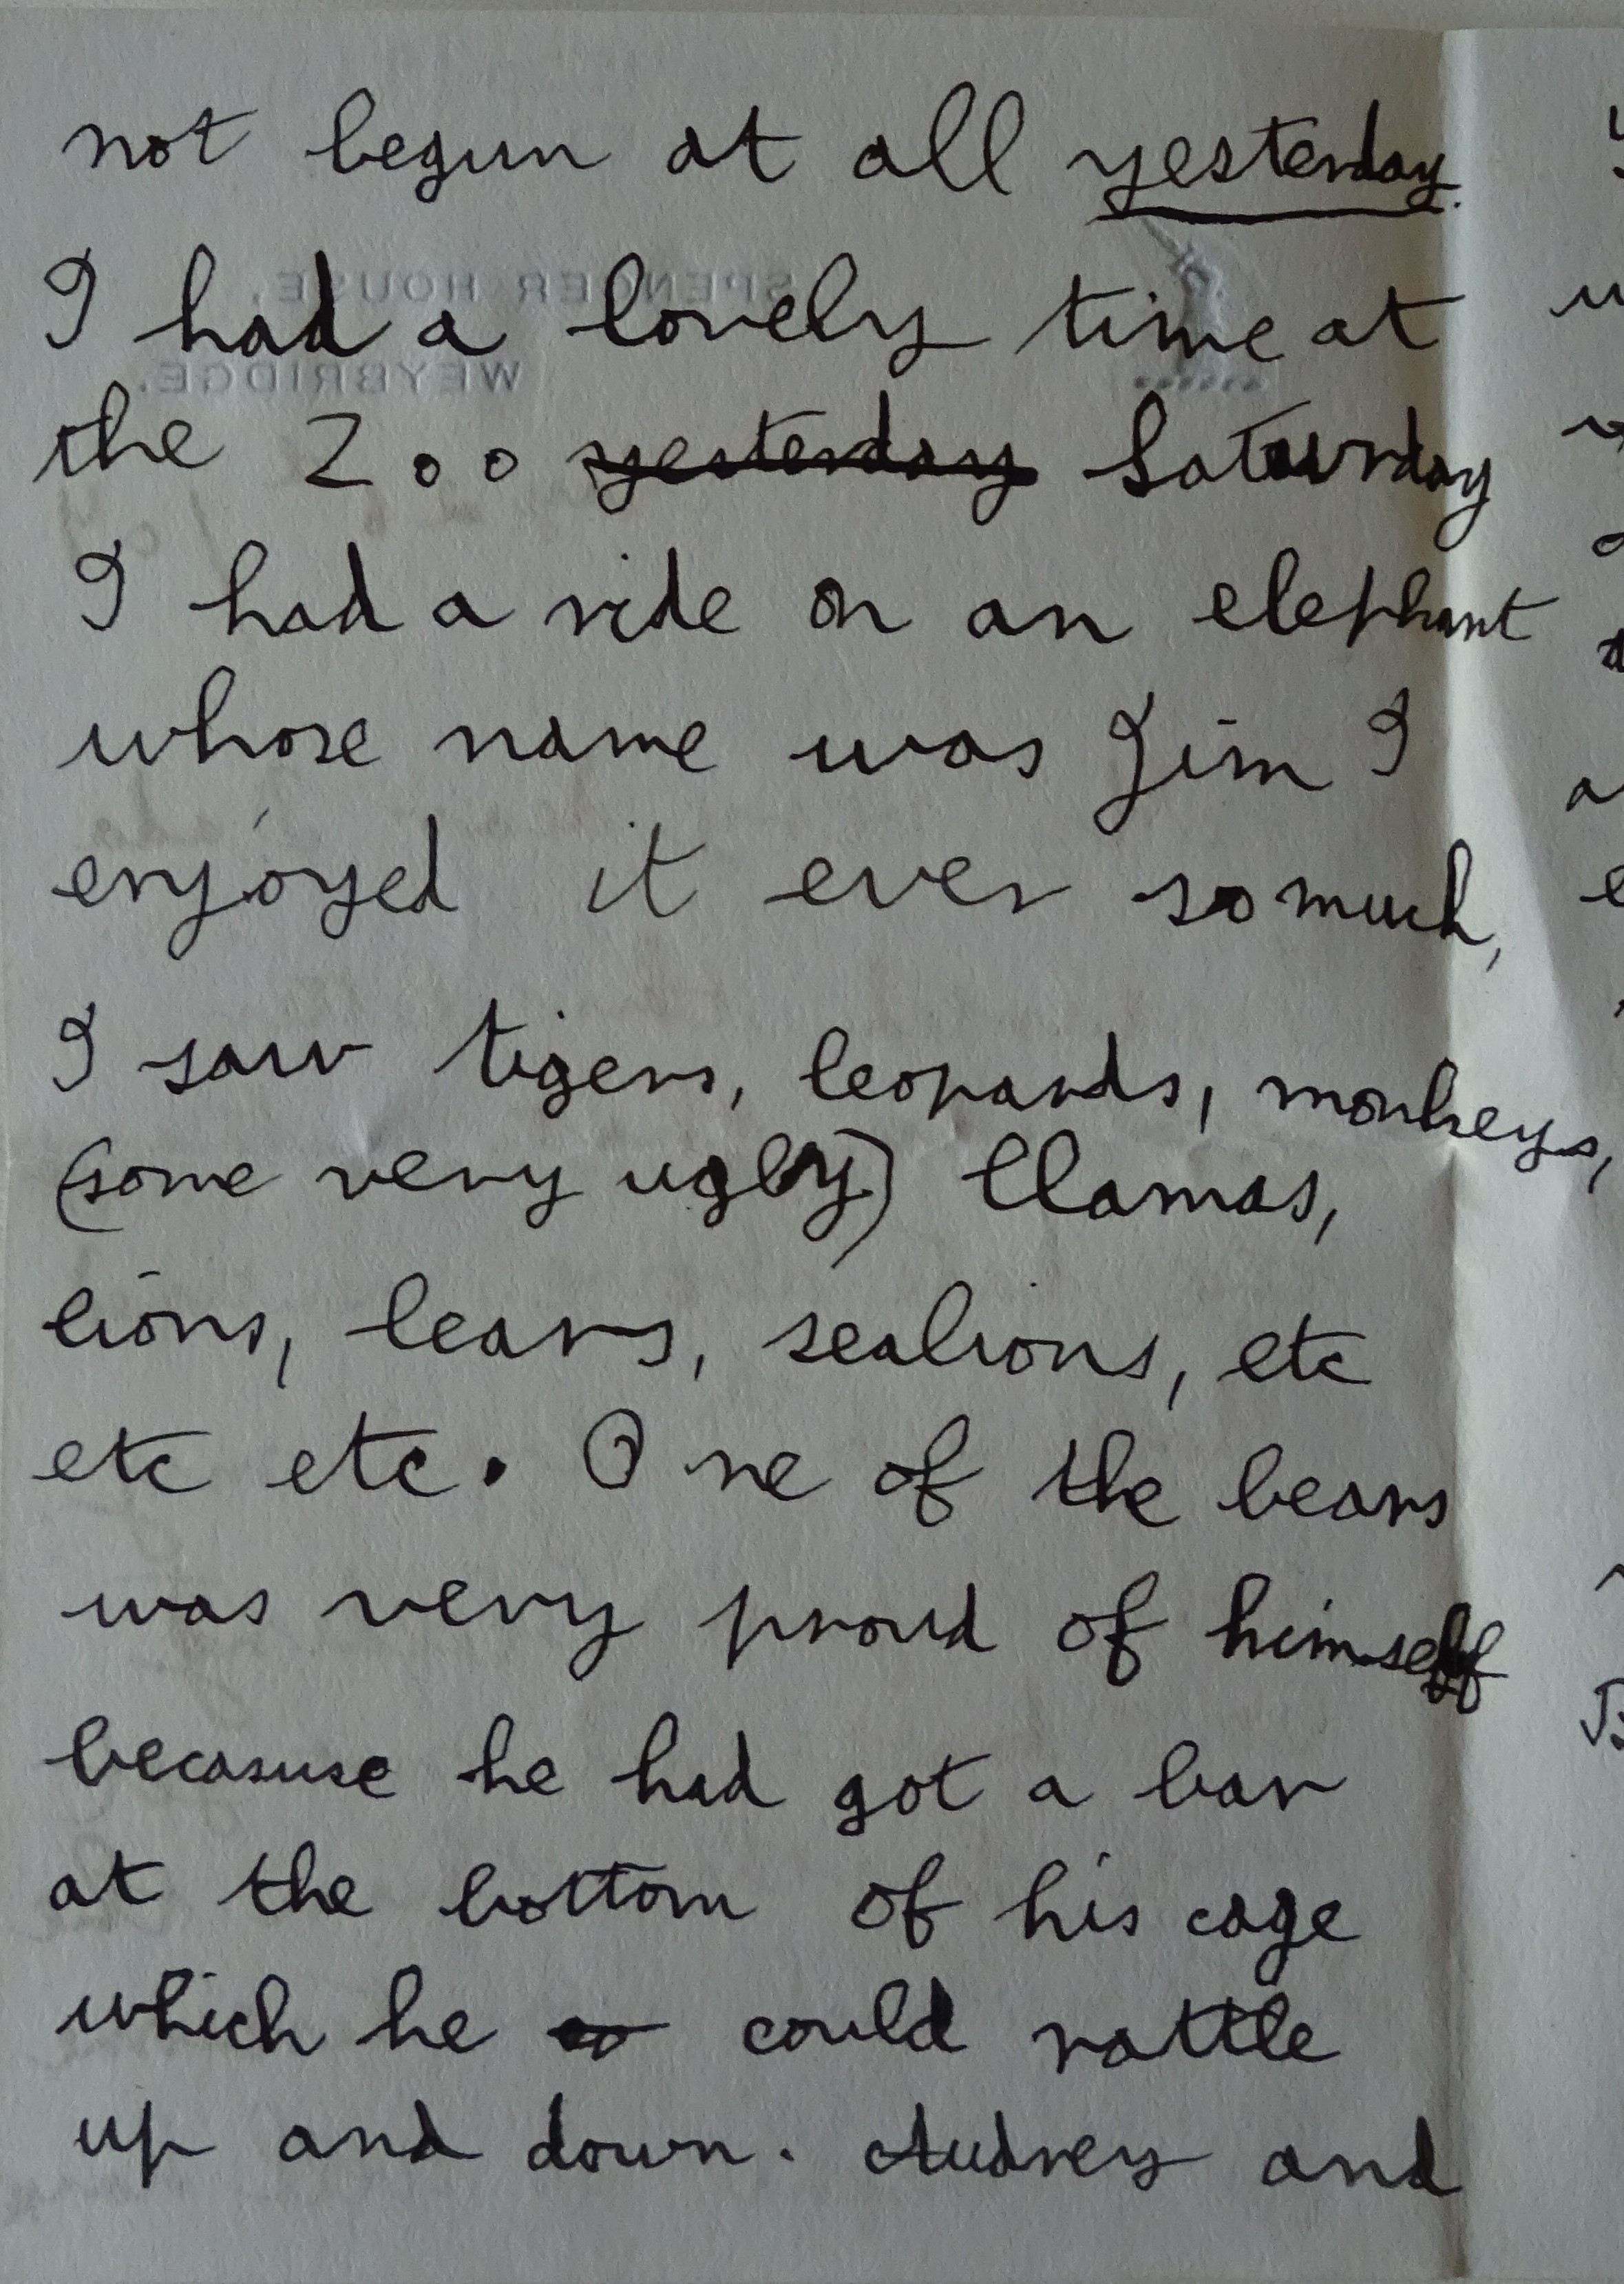 not begun at all yesterday.
SPENCER HOUSE,
I had a lovely time at
WEYBRIDGE.
the Zoo yesterday Saturday
I had a ride on an elephant
whose name was Jim I
enjoyed it ever so much,
I saw tigers, leopards, monkeys,
(some very ugly) llamas,
lions, bears, sealions, etc
etc etc. One of the bears
was very proud of himself
becasuse he had got a bar
at the bottom of his cage
which he co could rattle
up and down. Audrey and